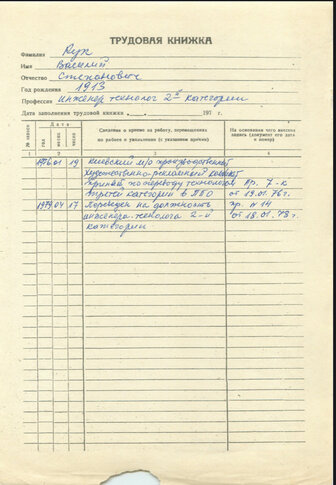 ТРУДОВАЯ КНИЖКА
Фамилия Рук
Имя Василий
Отчество Степанович
Год рождения 1913
Профессия инженер технолог 2й категории
Дата заполнения трудовой книжки 197 г.
№ записи
Дата
год
месяц
число
Сведения о приеме на работу, перемещениях
по работе и увольнении (с указанием причин)
На основании чего внесена
запись (документ его дата
и номер)
1 2 3 4
1976 01 19 Киевский производственный
художественно-рекламный комбинат
Принят по переводу технологом Пр. 7-к
категории в ПБО от 19.01.76г.
1979 04 17 Переведен на должность пр. н 14
инженера-технолога 2-й от 18.01.78г.
категории